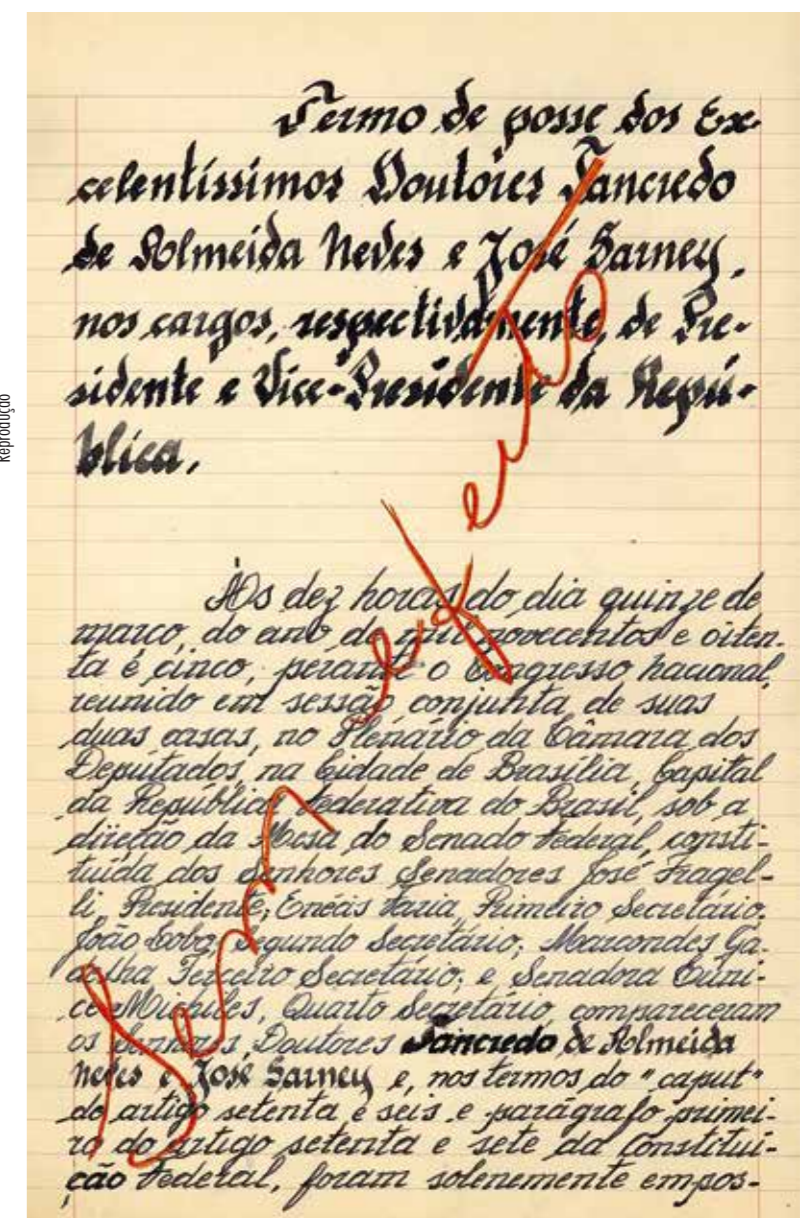 Termo de posse dos Ex-
celentíssimos Doutores Tancredo
de Almeida Neves e José Sarney,
nos cargos, respectivamente, de Pre-
sidente e Vice-Presidente da Repú-
blica.
Às dez horas do dia quinze de
março, do ano de mil novecentos e oiten-
ta e cinco, perante o Congresso Nacional,
reunido em sessão conjunta de suas
duas casas, no Plenário da Câmara dos
Deputados, na Cidade de Brasília, Capital
da República Federativa do Brasil, sob a
direção da Mesa do Senado Federal, consti-
tuída dos Senhores Senadores José Fragel-
li, Presidente; Enéas Faria, Primeiro Secretário;
João Lobo, Segundo Secretário; Marcondes Ga-
delha Terceiro Secretário; e Senadora Euni-
ce Michiles, Quarto Secretário, compareceram
os Senhores Doutores Tancredo de Almeida
Neves e José Sarney e, nos termos do "caput"
do artigo setenta e seis e parágrafo primei-
ro do artigo setenta e sete da Constitui-
ção Federal, foram solenemente empos-
Sem efeito
Reprodução